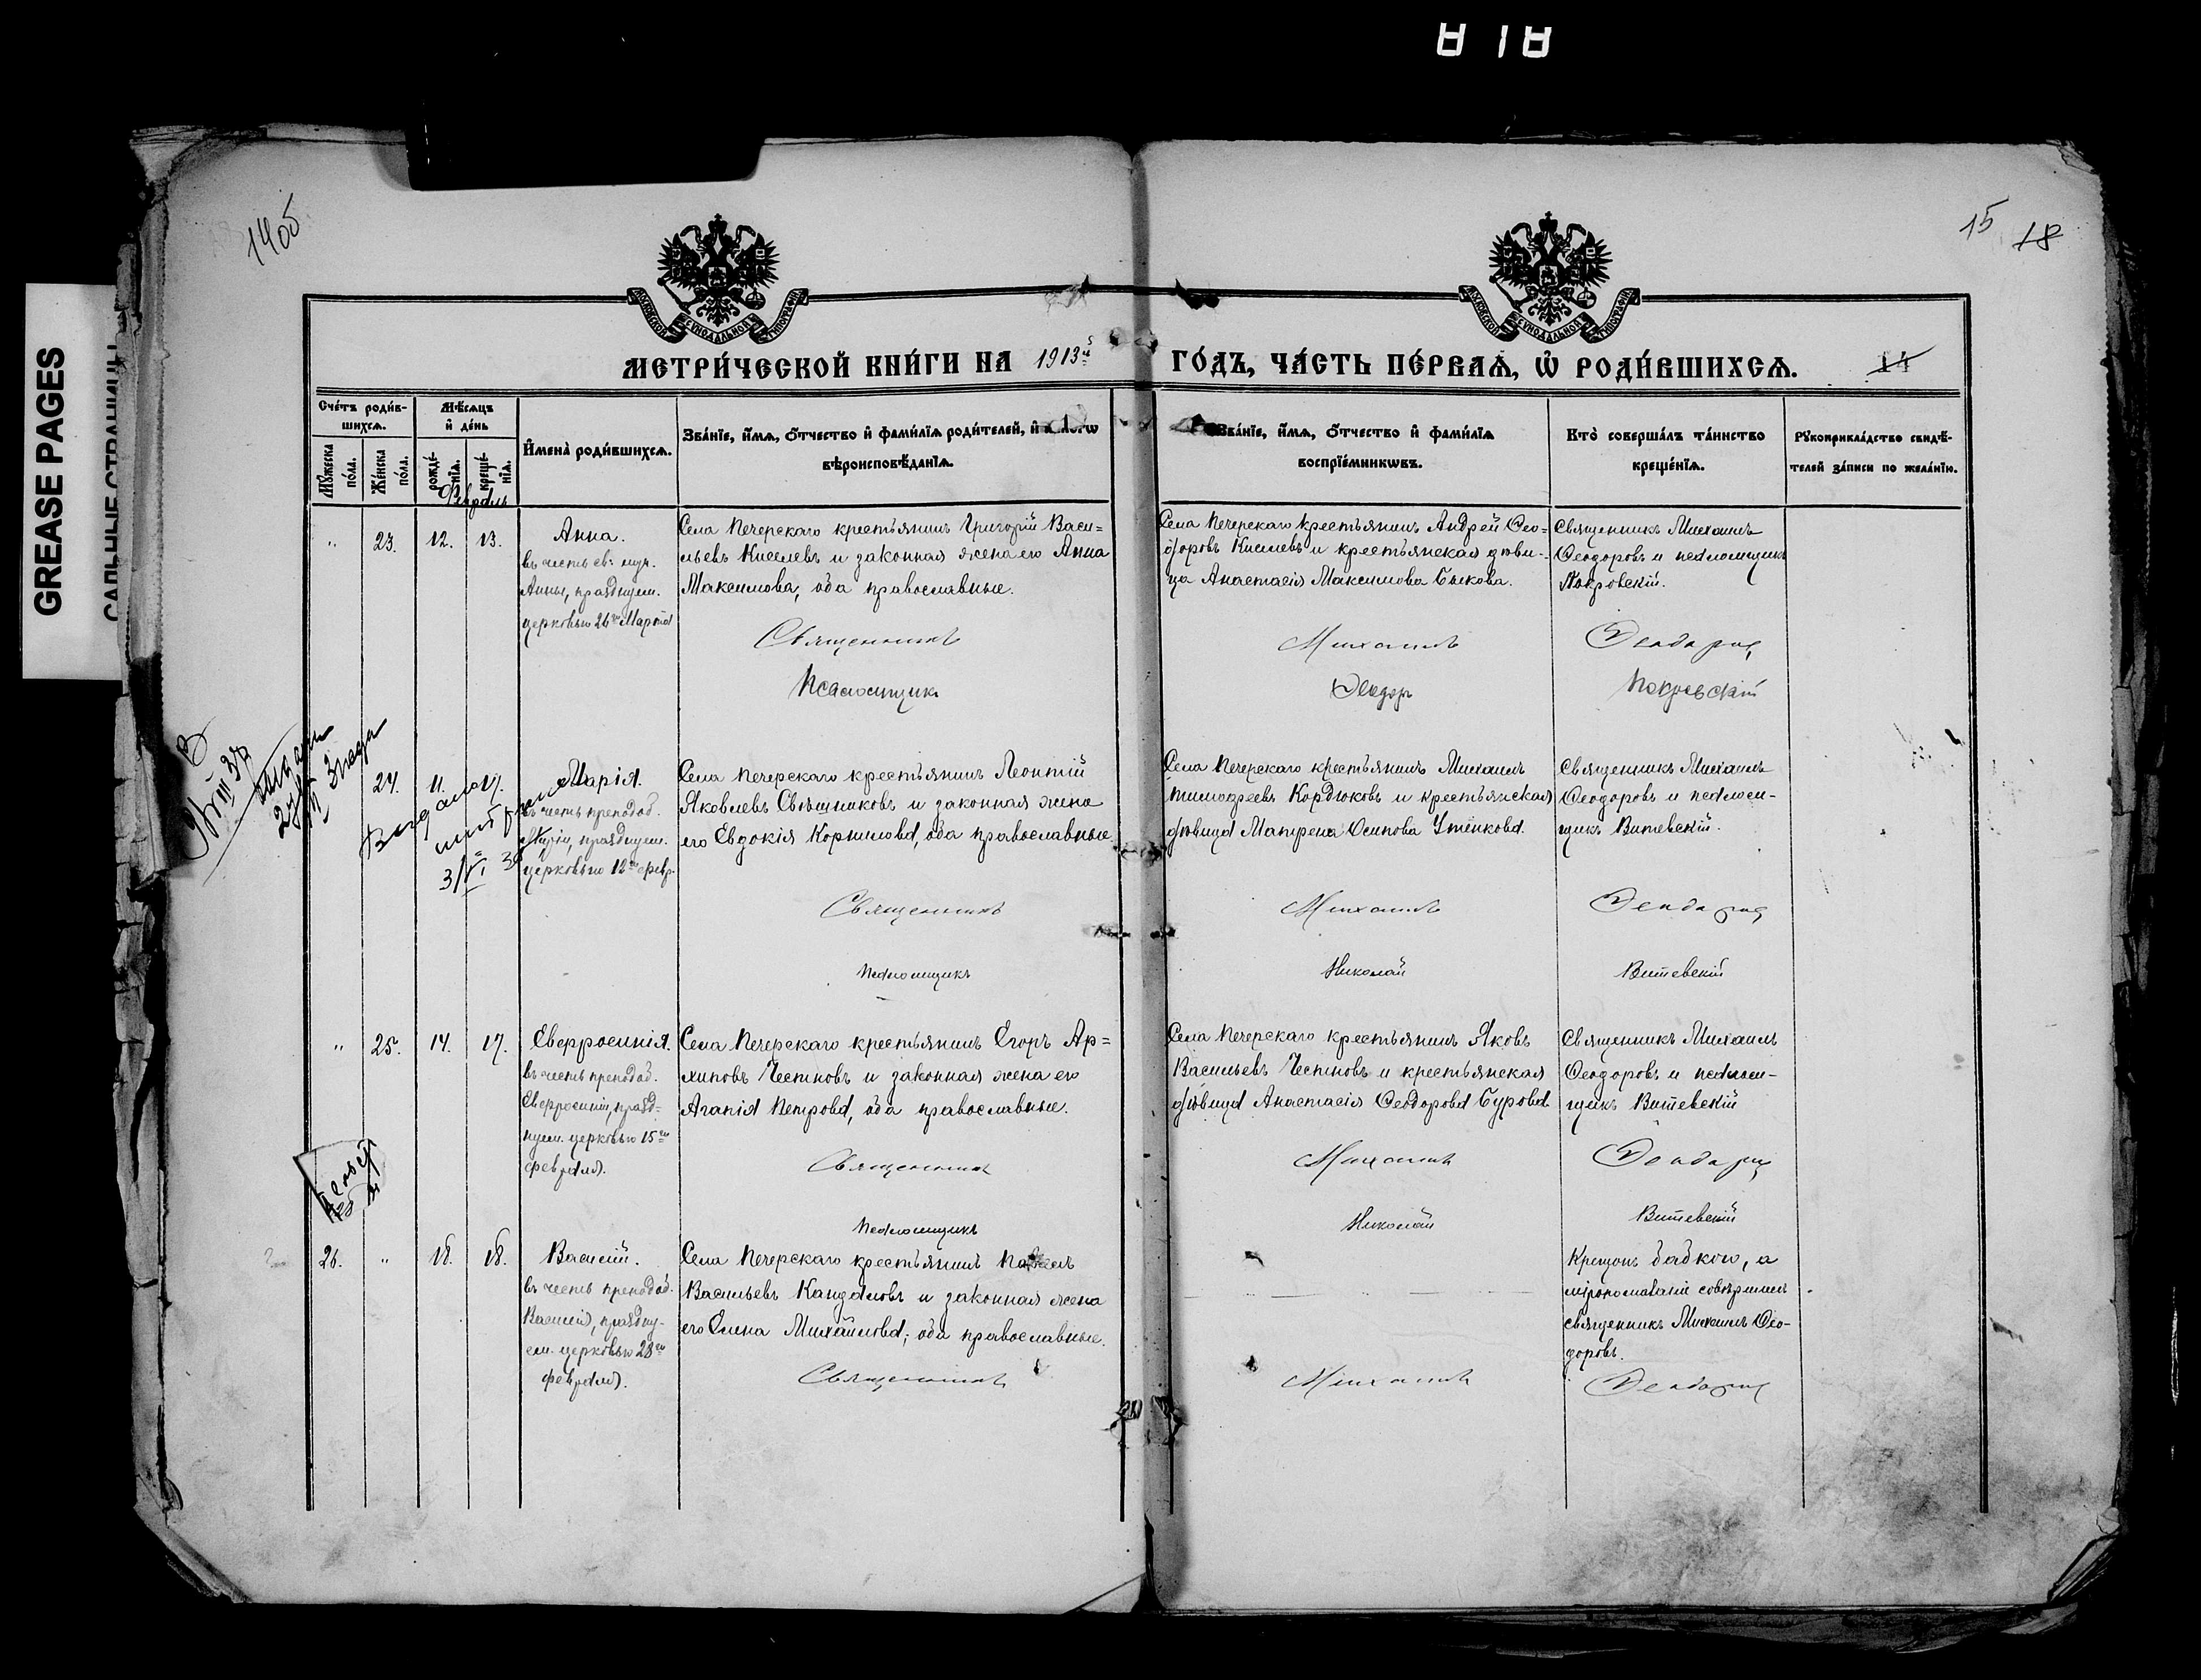 818
GREASE PAGES
САЛЬНЫЕ СТРАНИЦЫ
1405
15 18
МЕТРИ́ЧЕСКОЙ КНИ́ГИ НА 1913й
ГО́ДЪ, ЧА́СТЬ ПЕ́РВАѦ, Ѡ҆ РОДИ́ВШИХСѦ.
14
Сче́тъ роди́в-
шихсѧ.
Мѣ́сѧцъ
и҆ де́нь
Мꙋ́жеска
по́ла.
Же́нска
по́ла.
рожде́-
нїѧ.
креще́-
нїѧ.
И҆мена̀ роди́вшихсѧ.
Зва́нїе, и҆́мѧ, ѻ҆́тчество и҆ фами́лїѧ роди́телей, и҆
вѣроисповѣ́данїѧ.
Зва́нїе, и҆́мѧ, ѻ҆́тчество и҆ фами́лїѧ
воспрїе́мникѡвъ.
Кто̀ соверша́лъ та́инство
креще́нїѧ.
Рꙋкоприкла́дство свидѣ́-
телей за́писи по жела́нїю.
Февраль
„ 23. 12. 13.
Анна.
въ честь св. муч.
Анны, празднуем.
церковью 26го Марта
Села Печерскаго крестьянинъ Григорій Васи=
льевъ Киселевъ и законная жена его Анна
Максимова, оба православные.
Села Печерскаго крестьянинъ Андрей Ѳео=
доровъ Киселевъ и крестьянская дѣви-
ца Анастасія Максимова Быкова.
Священникъ Михаилъ
Ѳеодоровъ и псаломщикъ
Покровскій.
Священникъ Михаилъ Ѳеодоровъ
Псаломщик Ѳеодоръ Покровскій
24. 11. 17.
Марія.
въ честь преподоб.
Маріи, празднуем.
церковью 12го февр.
Села Печерскаго крестьянинъ Леонтій
Яковлевъ Свѣшниковъ и законная жена
его Евдокія Корнилова, оба православные.
Села Печерскаго крестьянинъ Михаилъ
Тимоѳеевъ Кордюковъ и крестьянская
дѣвица Матрена Осипова Утенкова.
Священникъ Михаилъ
Ѳеодоровъ и псаломщикъ
щикъ Витевскій.
Священникъ Михаилъ Ѳеодоровъ
Псаломщикъ Николай Витевскій
„ 25. 14. 17.
Евфросинія.
въ честь преподоб.
Евфросиніи, празд-
нуем. церковью 15го
февраля.
Села Печерскаго крестьянинъ Егоръ Ар=
хиповъ Честновъ и законная жена его
Агапія Петрова, оба православные.
Села Печерскаго крестьянинъ Яковъ
Васильевъ Честновъ и крестьянская
дѣвица Анастасія Ѳеодорова Бурова.
Священникъ Михаилъ
Ѳеодоровъ и псалом-
щикъ Витевскій
Священникъ Михаилъ Ѳеодоровъ
Псаломщикъ Николай Витевскій
26. „ 18. 18.
Василій.
въ честь преподоб.
Василія, праздну-
ем. церковью 28го
февраля.
Села Печерскаго крестьянинъ Павелъ
Васильевъ Кандаловъ и законная жена
его Елена Михайлова; оба православные.
Крещонъ бабкою, а
мѵропомазаніе совершилъ
священникъ Михаилъ Ѳео-
доровъ.
Священникъ Михаилъ Ѳеодоровъ